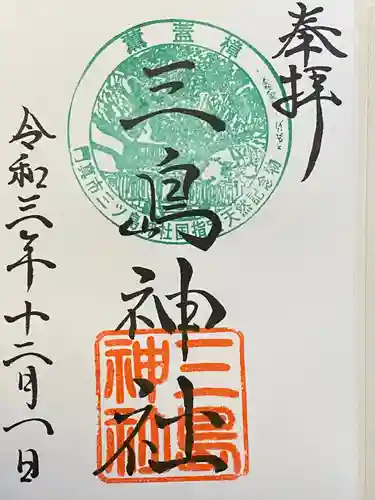 奉拝
薫蓋樟
門真市三ツ島
社国指定天然記念物
三島神社
三島神社
令和三年十二月一日